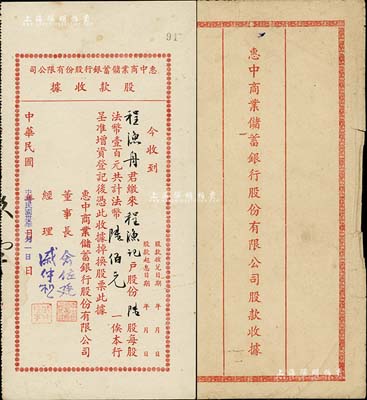 91
惠中商業儲蓄銀行股份有限公司
股款收據
今收到
程漁舟君繳來程漁記戶股份陸股每股
法幣壹百元共計法幣陸佰元一俟本行
呈准增資登記後憑此收據掉換股票此據
惠中商業儲蓄銀行股份有限公司
董事長
經理
中華民國
月 一日
股款收足日期 年 月 日
股款起息日期 年 月 日
惠中商業儲蓄銀行股份有限公司股款收據